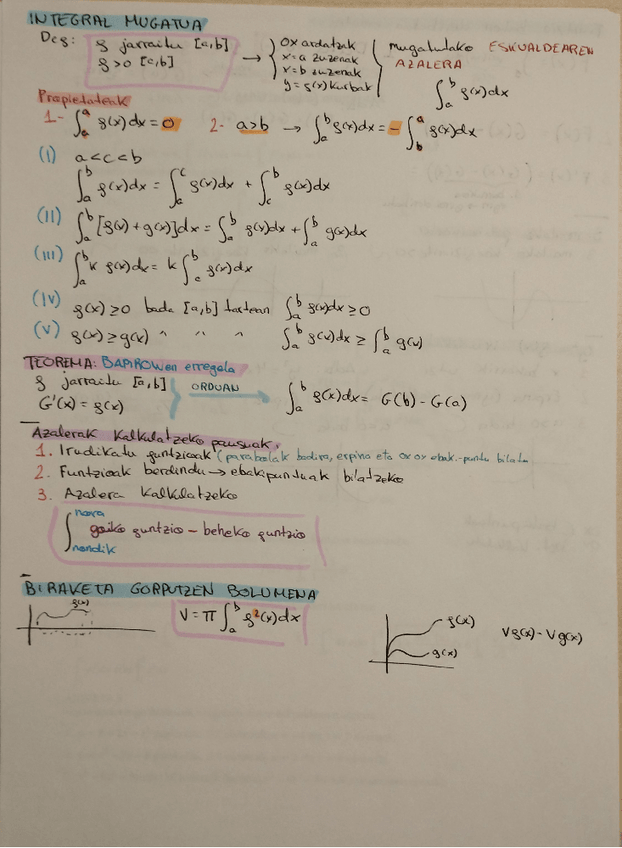 INTEGRAL MUGATUA
Def: f jarraitu [a,b] → { OX ardatzak } mugatutako ESKUALDEAREN
f>0 [a,b] x=a zuzenak AZALERA
x=b zuzenak
y=f(x) kurbak ∫_a^b f(x)dx
Propietateak
1- ∫_a^a f(x)dx = 0 2- a>b → ∫_a^b f(x)dx = - ∫_b^a f(x)dx
(i) a<c<b
∫_a^b f(x)dx = ∫_a^c f(x)dx + ∫_c^b f(x)dx
(ii) ∫_a^b [f(x) + g(x)]dx = ∫_a^b f(x)dx + ∫_a^b g(x)dx
(iii) ∫_a^b k f(x)dx = k ∫_c^b f(x)dx
(iv) f(x) ≥ 0 bada [a,b] tartean ∫_a^b f(x)dx ≥ 0
(v) f(x) ≥ g(x) " " " ∫_a^b f(x)dx ≥ ∫_a^b g(x)
TEOREMA: BARROWen erregela
f jarraitu [a,b] } ORDUAN → ∫_a^b f(x)dx = G(b) - G(a)
G'(x) = f(x)
Azalerak kalkulatzeko pausuak:
1. Irudikatu funtzioak (parabolak badira, erpina eta ox ebak.-puntu bilatu
2. Funtzioak berdindu → ebakipuntuak bilatzeko
3. Azalera kalkulatzeko
∫_nondik^nora goiko funtzio - beheko funtzio
BIRAKETA GORPUTZEN BOLUMENA
f(x) V = π ∫_a^b f²(x)dx f(x) g(x) Vf(x) - Vg(x)